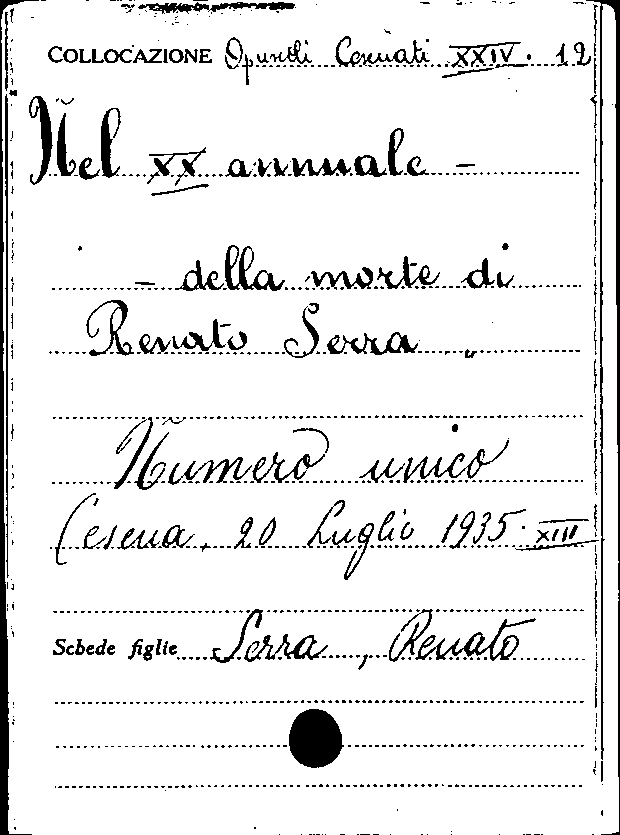 COLLOCAZIONE Opuscoli Cesenati XXIV. 12
Nel XX annuale -
- della morte di
Renato Serra „
Numero unico
Cesena, 20 Luglio 1935. XIII
Schede figlie Serra, Renato